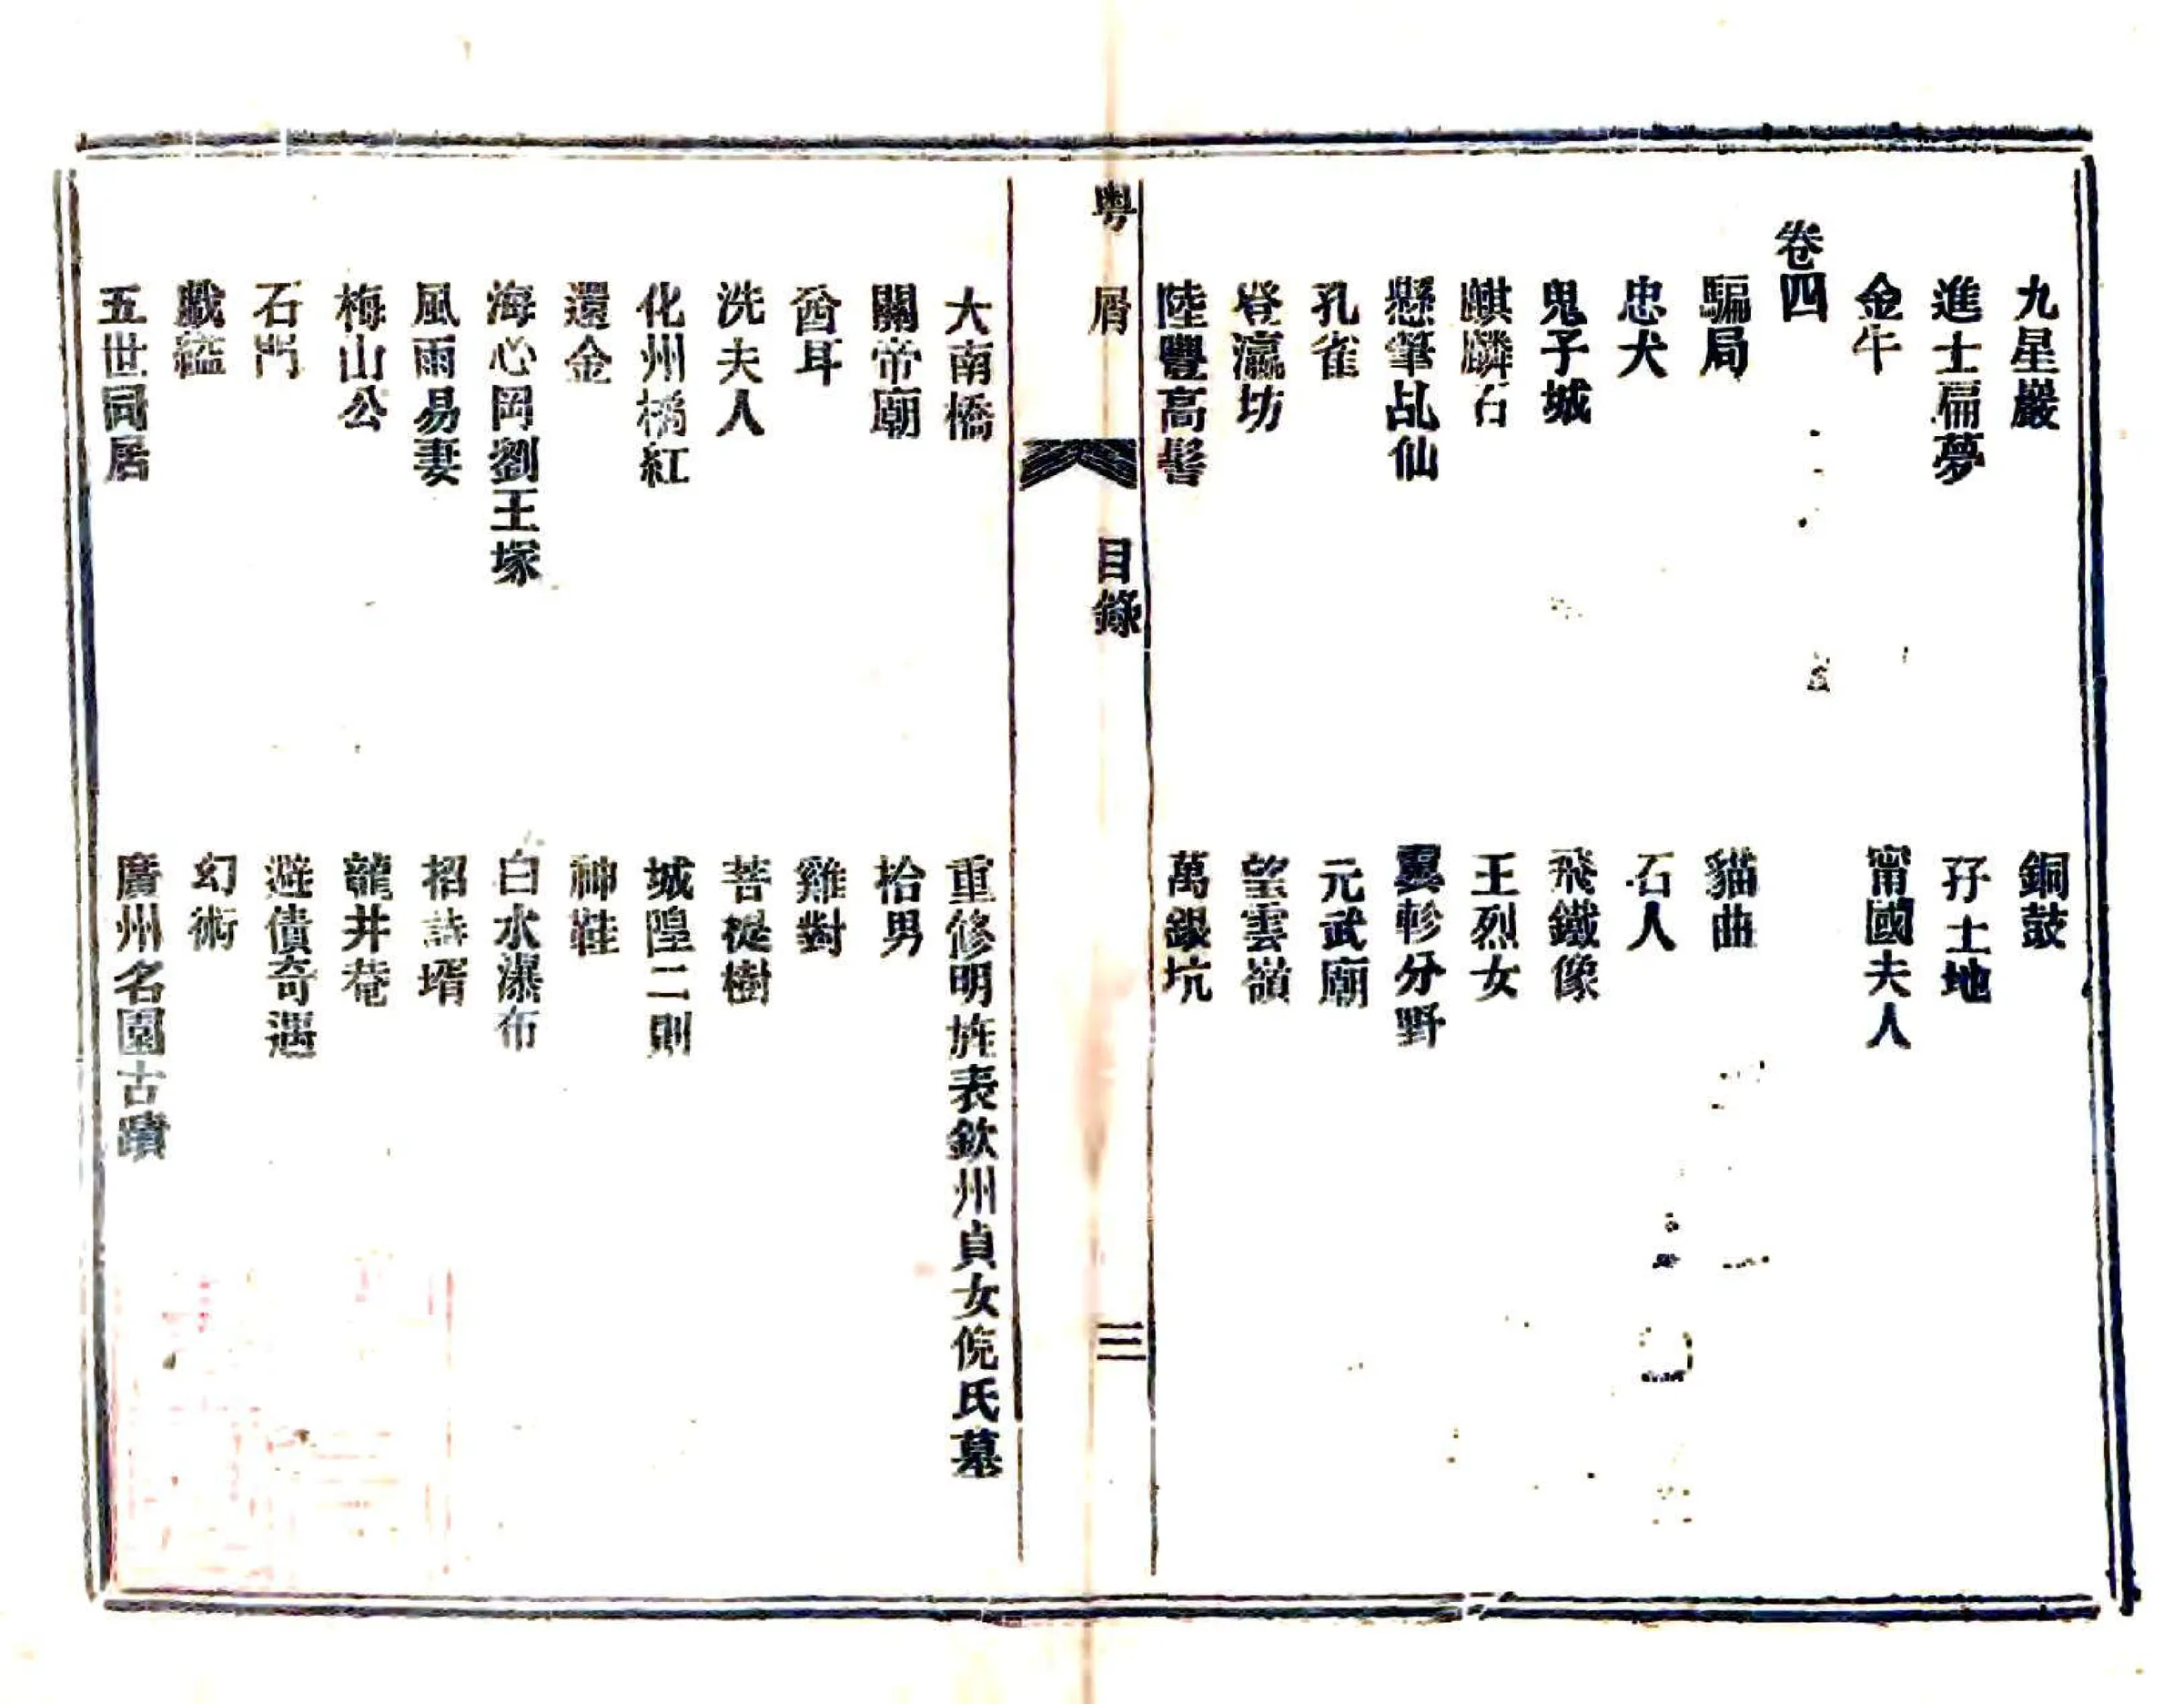 九星巖 銅鼓
進士扁夢 孖土地
金牛 甯國夫人
卷四
騙局 貓曲
忠犬 石人
鬼子城 飛鐵像
麒麟石 王烈女
懸筆乩仙 翼軫分野
孔雀 元武廟
登瀛坊 望雲嶺
陸豐高髻 萬銀坑
粵屑 目錄 三
大南橋 重修明旌表欽州貞女俺氏墓
關帝廟 拾男
酋耳 雞對
洗夫人 菩提樹
化州橘紅 城隍二則
還金 神鞋
海心岡劉王塚 白水瀑布
風雨易妻 招詩壻
梅山公 龍井菴
石門 避債奇遇
戲 幻術
五世同居 廣州名園古蹟